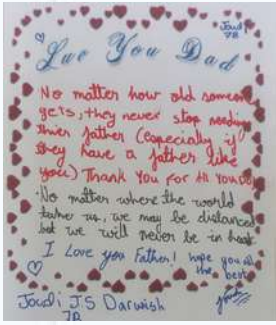 Joudi
7B
Luv You Dad
No matter how old someone
gets, they never stop needing
thier father (especially if
they have a father like
you) Thank You For All You Do
No matter where the world
takes us, we may be distanced
but we will never be in heart
I Love you Father! hope you all
the best
Joudi JS Darwish
7B